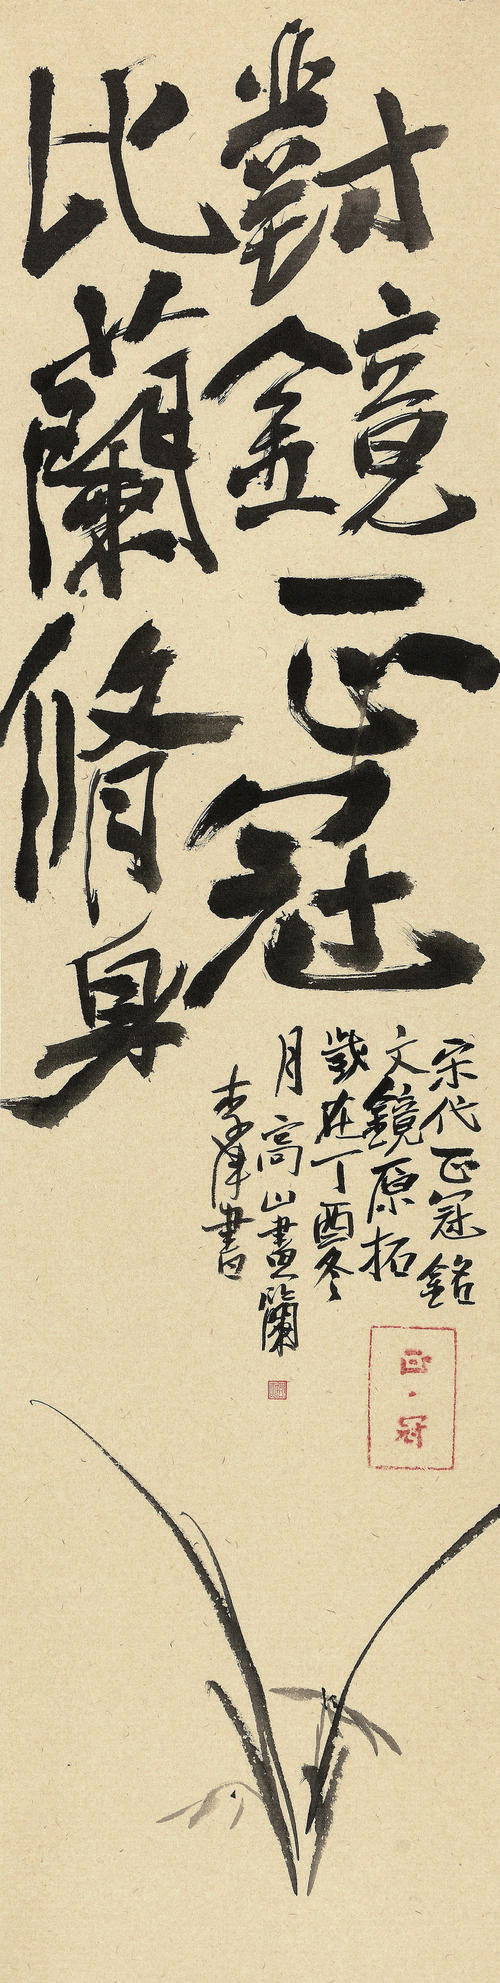 對鏡正冠
比蘭脩身
宋代正冠銘
文鏡原拓
歲在丁酉冬
月高山畫蘭
李津書
正·冠